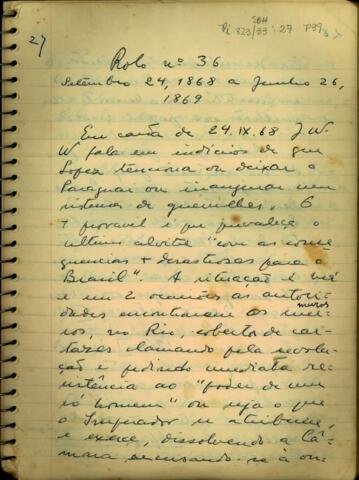 SBH
Pi 823/33 : 27 P39
27
Rolo nº 36
Setembro 24, 1868 a Junho 26,
1869
Em carta de 24.IX.68 J.W.
W fala em indícios de que
Lopez tenciona ou deixar o
Paraguai ou inaugurar um
sistema de guerrilhas. É
+ provavel é que prevaleça o
ultimo alvitre "com as conse
quencias + desastrosas para o
Brasil". A situação é
e em 2 ocasiões as autori
dades encontraram os
muros
ros, no Rio, cobertos de car
tazes clamando pela revolu
ção e pedindo imediata re
sistência ao "poder de um
só homem" ou seja o que
o Imperador se atribuiu,
e exerce, dissolvendo a Câ
mara, recusando-se à ou